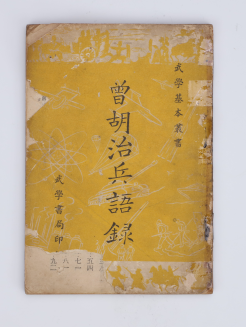 武學基本叢書
曾胡治兵語録
武學書局印